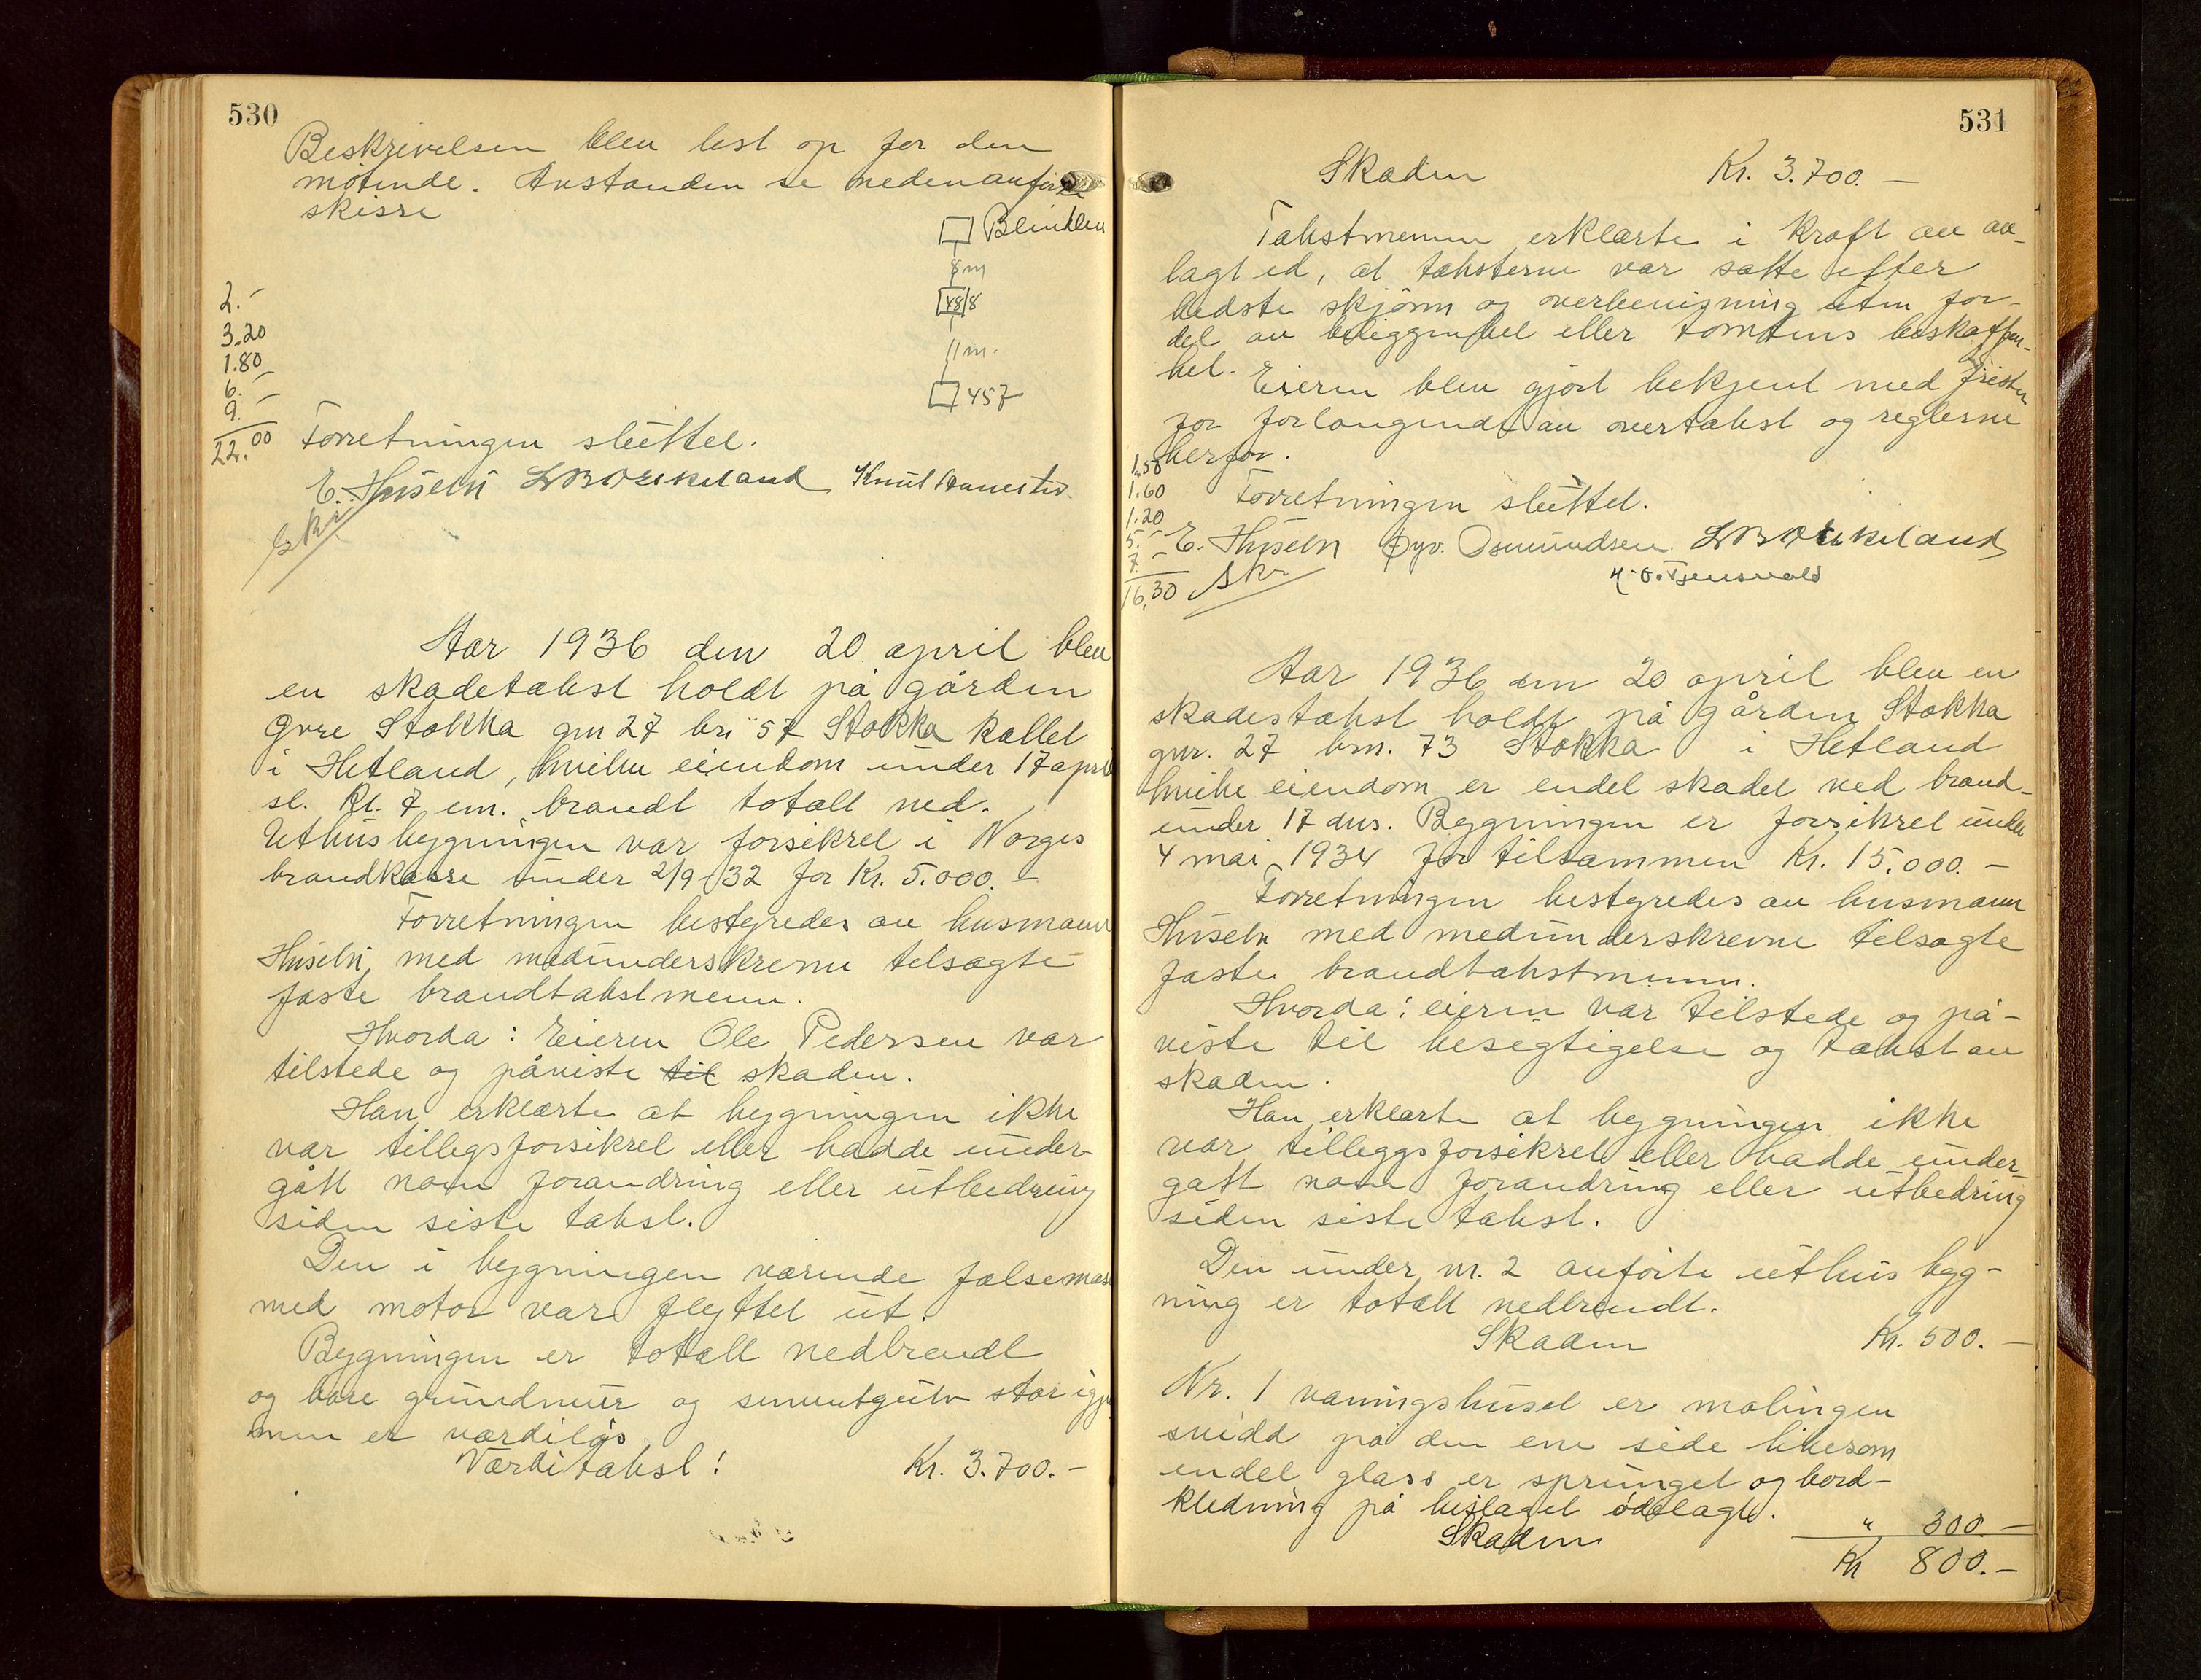 530
Beskrivelsen blev lest op for den
møtende. Avstanden se nedenanførte
skisse
Blindlen
8m
48/8
11m.
457
2.-
3.20
1.80
6.-
9.-
22.00
Forretningen sluttet.
E. Husebø LBOrkeland Knut
Skr.
Aar 1936 den 20 april blev
en skadetakst holdt på gården
Øvre Stokka gnr 27 br 57 Stokka kallet
i Hetland, hvilken eiendom under 17 april
sl. kl. 7 em. brandt totalt ned.
Uthusbygningen var forsikret i Norges
brandkasse under 2/9 32 for Kr. 5.000.-
Forretningen bestyredes av husmann
Husebø med medunderskrevne tilsagte
faste brandtakstmenn.
Hvorda: Eieren Ole Pedersen var
tilstede og påviste til skaden.
Han erklærte at bygningen ikke
var tillegsforsikret eller hadde under-
gått noen forandring eller utbedring
siden siste takst.
Den i bygningen værende falsemas
med motor var flyttet ut.
Bygningen er totalt nedbrendt
og bare grundmur og sementgulv står igjen
men er værdiløs
Værditakst: Kr. 3.700.-
531
Skaden Kr. 3.700.-
Takstmennene erklærte i kraft av av-
lagt ed, at taksterne var satte efter
bedste skjønn og overbevisning uten for-
del av beliggenhet eller tomtens beskaffen-
het.
Eieren blev gjort bekjent med fristen
for forlangende av overtakst og reglerne
herfor.
1.50
1.60
1.20
5.-
7.-
16,30
Forretningen sluttet.
E. Husebø Øyv. Osmundsen. LBOrkeland
H. O. Tjensvold
Skr
Aar 1936 den 20 april blev en
skadestakst holdt på gården Stokka
gnr. 27 brn. 73 Stokka i Hetland
hvilke eiendom er endel skadet ved brand
under 17 dns. Bygningen er forsikret under
4 mai 1934 for tilsammen Kr. 15.000.-
Forretningen bestyredes av husmann
Husebø med medunderskrevne tilsagte
faste brandtakstmenn.
Hvorda: eieren var tilstede og på-
viste til besigtigelse og takst av
skaden.
Han erklærte at bygningen ikke
var tilleggsforsikret eller hadde under-
gått noen forandring eller utbedring
siden siste takst.
Den under nr. 2 anførte uthusbyg-
ning er totalt nedbrendt.
Skaden Kr. 500.-
Nr. 1 våningshuset er malingen
svidd på den ene side likesom
endel glass er sprunget og bord-
kledning på bislaget ødelagt.
Skaden " 300.-
Kr 800.-